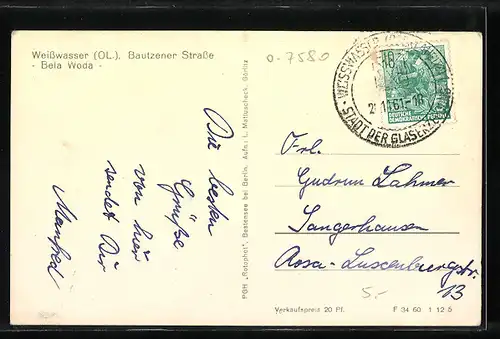 Weißwasser (OL.), Bautzener Straße
- Bela Woda -
o-7580
WEISSWASSER
2.11.61-18
STADT DER GLASER
DEUTSCHE
DEMOKRATISCHE REPUBLIK
Die besten
Grüße
von hier
sendet Dir
Manfred
PGH „Rotophot“, Bestensee bei Berlin. Aufn.: L. Mattuscheck, Görlitz
Frl.
Gudrun Lahmer
Sangerhausen
Rosa-Luxemburgstr.
13
5.-
Verkaufspreis 20 Pf.
F 34 60 1 12 5